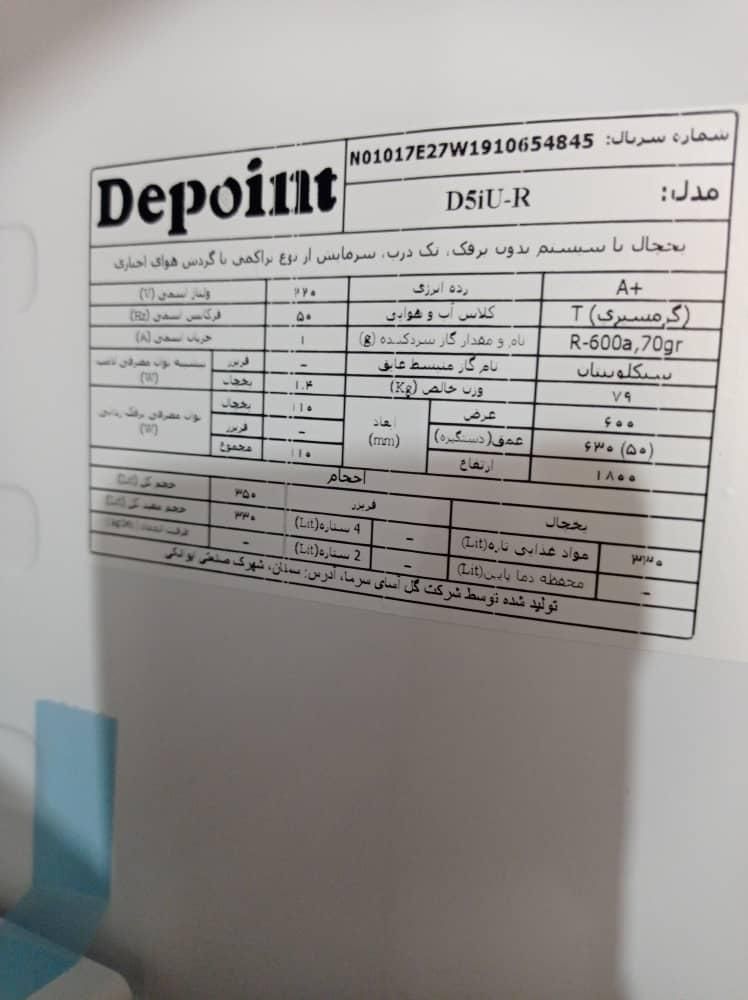 Depoint
شماره سریال: N01017E27W1910654845
مدل: D5iU-R
یخچال با سیستم بدون برفک، تک درب، سرمایش از نوع تراکمی با گردش هوای اجباری
A+ رده انرژی ۲۲۰ ولتاژ اسمی (V)
T (گرمسیری) کلاس آب و هوایی ۵۰ فرکانس اسمی (Hz)
R-600a,70gr نام و مقدار گاز سردکننده (g) ۱ جریان اسمی (A)
سیکلوپنتان نام گاز منبسط عایق - فریزر
۷۹ وزن خالص (Kg) ۱.۴ یخچال (W)
۶۰۰ عرض ابعاد (mm) ۱۱۰ یخچال توان مصرفی برفک زدایی (W)
۶۳۰ (۵۰) عمق(دستگیره) - فریزر
۱۸۰۰ ارتفاع ۱۱۰ مجموع
احجام
یخچال فریزر ۳۵۰ حجم کل (Lit)
۳۳۰ مواد غذایی تازه(Lit) - 4 ستاره(Lit) ۳۳۰ حجم مفید کل (Lit)
- محفظه دما پایین(Lit) - 2 ستاره(Lit) -
تولید شده توسط شرکت گل آسای سرما، آدرس: سمنان، شهرک صنعتی ایوانکی